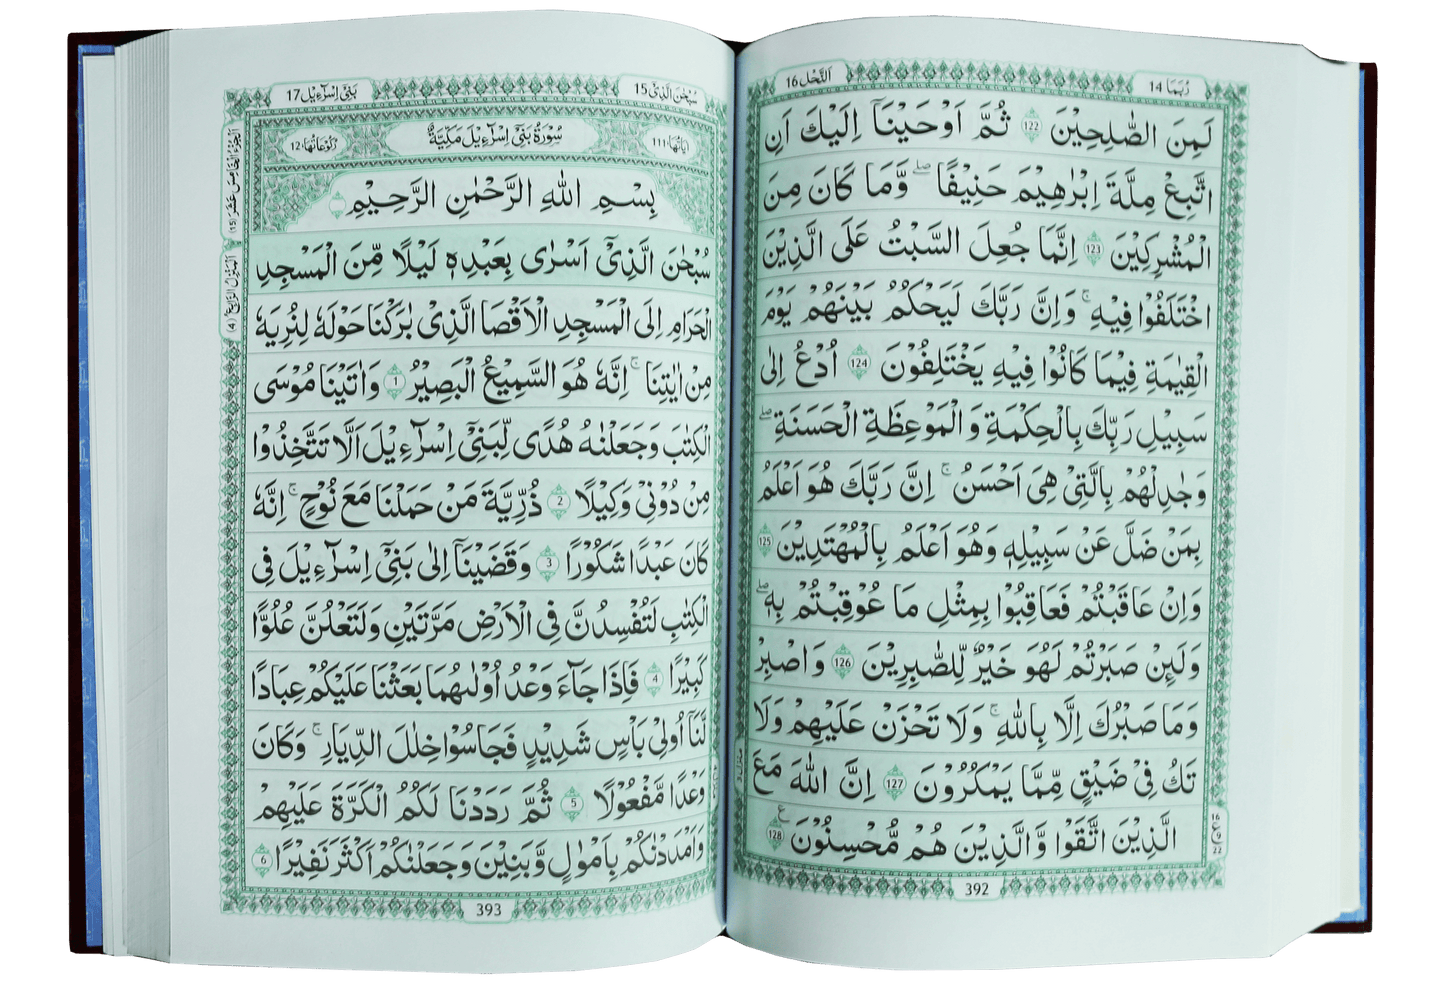 رُبَمَا 14
اَلنَّحْل 16
لَمِنَ الصّٰلِحِيْنَ 122 ثُمَّ اَوْحَيْنَاۤ اِلَيْكَ اَنِ
اتَّبِعْ مِلَّةَ اِبْرٰهِيْمَ حَنِيْفًا ؕ وَمَا كَانَ مِنَ
الْمُشْرِكِيْنَ 123 اِنَّمَا جُعِلَ السَّبْتُ عَلَى الَّذِيْنَ
اخْتَلَفُوْا فِيْهِ ۚ وَاِنَّ رَبَّكَ لَيَحْكُمُ بَيْنَهُمْ يَوْمَ
الْقِيٰمَةِ فِيْمَا كَانُوْا فِيْهِ يَخْتَلِفُوْنَ 124 اُدْعُ اِلٰى
سَبِيْلِ رَبِّكَ بِالْحِكْمَةِ وَالْمَوْعِظَةِ الْحَسَنَةِ ۖ
وَجَادِلْهُمْ بِالَّتِيْ هِيَ اَحْسَنُ ۚ اِنَّ رَبَّكَ هُوَ اَعْلَمُ
بِمَنْ ضَلَّ عَنْ سَبِيْلِهٖ وَهُوَ اَعْلَمُ بِالْمُهْتَدِيْنَ 125
وَاِنْ عَاقَبْتُمْ فَعَاقِبُوْا بِمِثْلِ مَا عُوْقِبْتُمْ بِهٖ ۖ
وَلَئِنْ صَبَرْتُمْ لَهُوَ خَيْرٌ لِّلصّٰبِرِيْنَ 126 وَاصْبِرْ
وَمَا صَبْرُكَ اِلَّا بِاللّٰهِ ۚ وَلَا تَحْزَنْ عَلَيْهِمْ وَلَا
تَكُ فِيْ ضَيْقٍ مِّمَّا يَمْكُرُوْنَ 127 اِنَّ اللّٰهَ مَعَ
الَّذِيْنَ اتَّقَوْا وَّالَّذِيْنَ هُمْ مُّحْسِنُوْنَ 128
16
ع 9
22
392
سُبْحٰنَ الَّذِيْ 15
بَنِيْ اِسْرَآءِيْل 17
اٰيَاتُهَا: 111
سُوْرَةُ بَنِيْٓ اِسْرَآءِيْلَ مَكِّيَّةٌ
رُكُوْعَاتُهَا: 12
بِسْمِ اللّٰهِ الرَّحْمٰنِ الرَّحِيْمِ
سُبْحٰنَ الَّذِيْٓ اَسْرٰى بِعَبْدِهٖ لَيْلًا مِّنَ الْمَسْجِدِ
الْحَرَامِ اِلَى الْمَسْجِدِ الْاَقْصَا الَّذِيْ بٰرَكْنَا حَوْلَهٗ لِنُرِيَهٗ
مِنْ اٰيٰتِنَا ۚ اِنَّهٗ هُوَ السَّمِيْعُ الْبَصِيْرُ 1 وَاٰتَيْنَا مُوْسَى
الْكِتٰبَ وَجَعَلْنٰهُ هُدًى لِّبَنِيْٓ اِسْرَآءِيْلَ اَلَّا تَتَّخِذُوْا
مِنْ دُوْنِيْ وَكِيْلًا 2 ذُرِّيَّةَ مَنْ حَمَلْنَا مَعَ نُوْحٍ ۚ اِنَّهٗ
كَانَ عَبْدًا شَكُوْرًا 3 وَقَضَيْنَآ اِلٰى بَنِيْٓ اِسْرَآءِيْلَ فِى
الْكِتٰبِ لَتُفْسِدُنَّ فِى الْاَرْضِ مَرَّتَيْنِ وَلَتَعْلُنَّ عُلُوًّا
كَبِيْرًا 4 فَاِذَا جَآءَ وَعْدُ اُوْلٰىهُمَا بَعَثْنَا عَلَيْكُمْ عِبَادًا
لَّنَآ اُولِيْ بَاْسٍ شَدِيْدٍ فَجَاسُوْا خِلٰلَ الدِّيَارِ ۚ وَكَانَ
وَعْدًا مَّفْعُوْلًا 5 ثُمَّ رَدَدْنَا لَكُمُ الْكَرَّةَ عَلَيْهِمْ
وَاَمْدَدْنٰكُمْ بِاَمْوَالٍ وَّبَنِيْنَ وَجَعَلْنٰكُمْ اَكْثَرَ نَفِيْرًا 6
اَلْجُزْءُ الْخَامِسَ عَشَرَ (15)
اَلْمَنْزِلُ الرَّابِعُ (4)
393